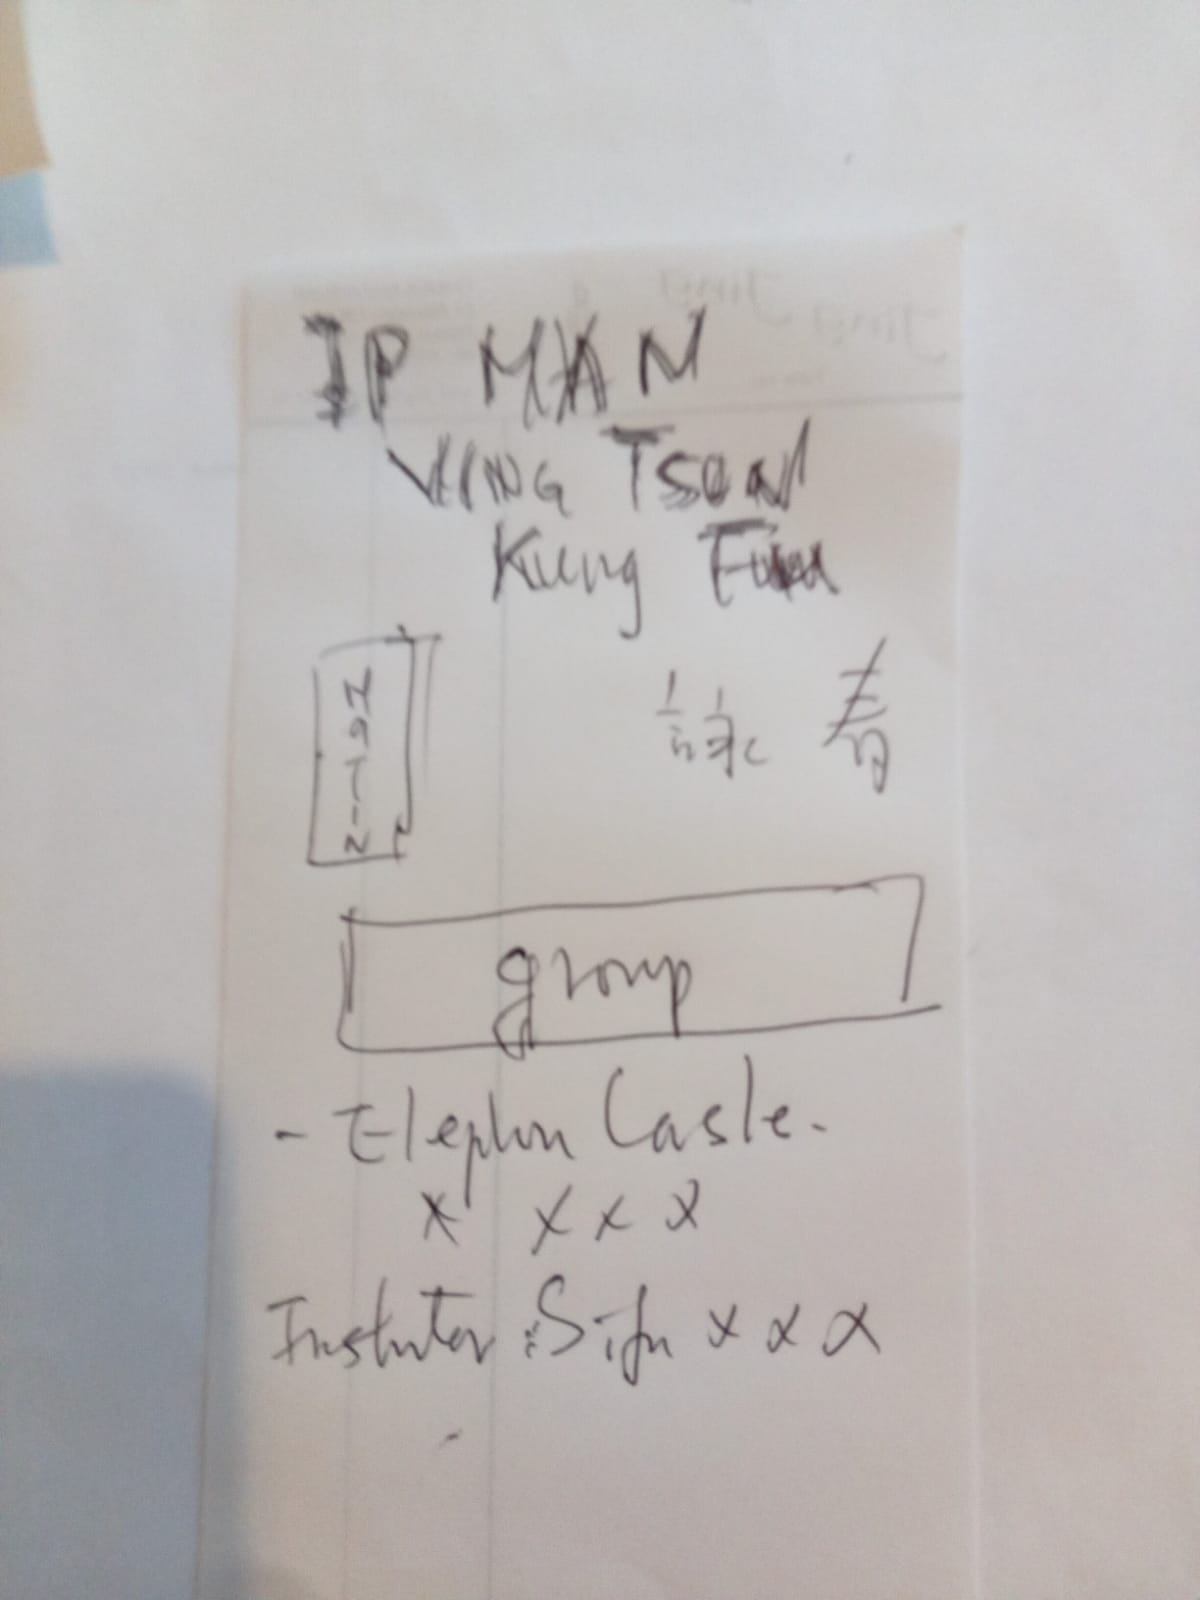 IP MAN
WING TSUN
Kung Fu
詠 春
group
- Elephn Casle.
x x x x
Instutor : Sifu x x x